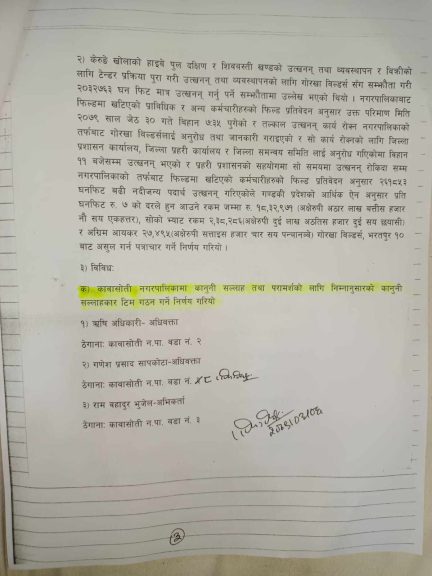 २) केरुङे खोलाको हाइवे पुल दक्षिण र शिवबस्ती खण्डको उत्खनन् तथा व्यवस्थापन र बिक्रीको
लागि टेन्डर प्रक्रिया पुरा गरी उत्खनन् तथा व्यवस्थापनको लागि गोरखा बिल्डर्स संग सम्झौता गरी
२०३२७६३ घन फिट मात्र उत्खनन् गर्नु पर्ने सम्झौतामा उल्लेख भएको थियो । नगरपालिकाबाट
फिल्डमा खटिएको प्राविधिक र अन्य कर्मचारीहरुको फिल्ड प्रतिवेदन अनुसार उक्त परिमाण मिति
२०७९ साल जेठ ३० गते बिहान ७:३५ पुगेको र तत्काल उत्खनन् कार्य रोक्न नगरपालिकाको
तर्फबाट गोरखा बिल्डर्सलाई अनुरोध तथा जानकारी गराइएको र सो कार्य रोक्नको लागि जिल्ला
प्रशासन कार्यालय, जिल्ला प्रहरी कार्यालय र जिल्ला समन्वय समिति लाई अनुरोध गरिएकोमा बिहान
११ बजेसम्म उत्खनन् भएको र प्रहरी प्रशासनको सहयोगमा सो समयमा उत्खनन् रोकिदा सम्म
नगरपालिकाको तर्फबाट फिल्डमा खटिएको कर्मचारीहरुको फिल्ड प्रतिवेदन अनुसार २६१८५३
घनफिट बढी नदीजन्य पदार्थ उत्खनन् गरिएकोले गण्डकी प्रदेशको आर्थिक ऐन अनुसार प्रति
घनफिट रु. ७ को दरले हुन आउने रकम जम्मा रु. १८,३२,९७१ (अक्षेरुपी अठार लाख बत्तीस हजार
नौ सय एकहत्तर), सोको भ्याट रकम २,३८,२८६(अक्षेरुपी दुई लाख अठतिस हजार दुई सय छयासी)
र अग्रिम आयकर २७,४९५(अक्षेरुपी सत्ताइस हजार चार सय पन्चानब्बे) गोरखा बिल्डर्स, भरतपुर १०
बाट असुल गर्न पत्राचार गर्ने निर्णय गरियो ।
३) विविध:
क) कावासोती नगरपालिकामा कानुनी सल्लाह तथा परामर्शको लागि निम्नानुसारको कानुनी
सल्लाहकार टिम गठन गर्ने निर्णय गरियो
१) ऋषि अधिकारी- अधिवक्ता
ठेगाना: कावासोती न.पा. वडा नं. २
२) गणेश प्रसाद सापकोटा-अधिवक्ता
ठेगाना: कावासोती न.पा. वडा नं.
३) राम बहादुर भुजेल-अभिकर्ता
ठेगाना: कावासोती न.पा. वडा नं. ३